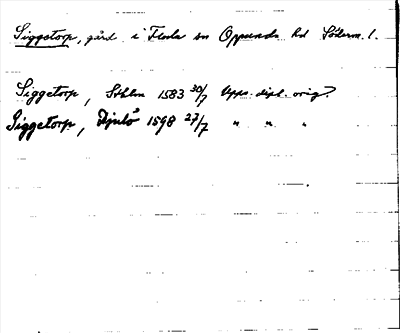 Siggetorp, gård i Floda sn Oppunda hd Söderm. l.
Siggetorp, Sthlm 1583 30/7 Upps. dipl. orig.
Siggetorp, Djulö 1598 27/7 " " "